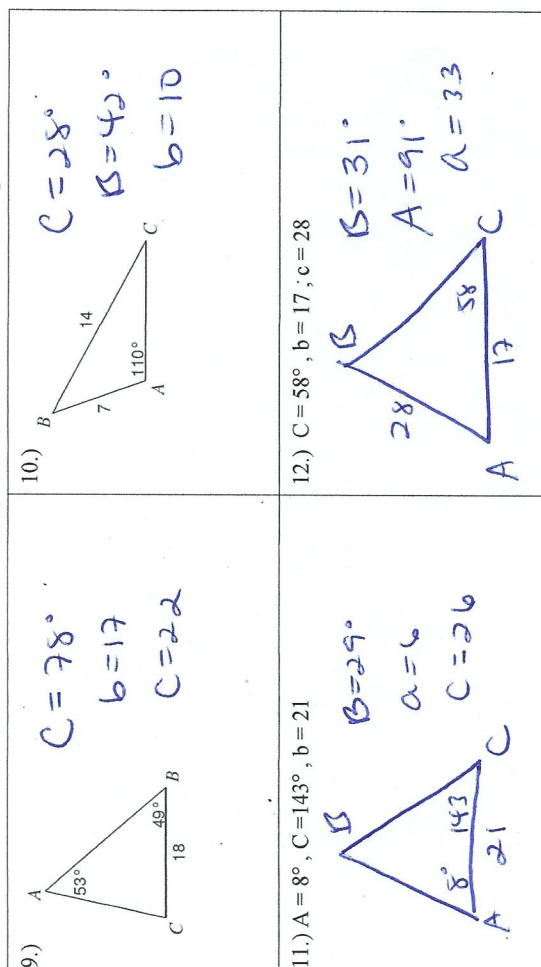 9.)
A
53°
49°
B
18
C
C = 78°
b = 17
C = 22
10.)
B
14
7
110°
A
C
C = 28°
B = 42°
b = 10
11.) A = 8°, C =143°, b = 21
B
8°
143
A
21
C
B=29°
a=6
C = 26
12.) C = 58°, b = 17 ; c = 28
B
28
58
A
17
C
B = 31°
A = 91°
a = 33